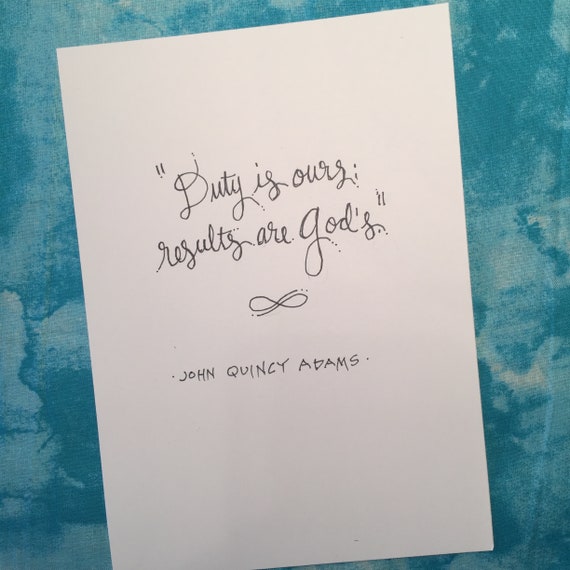 "Duty is ours;
results are God's."
· JOHN QUINCY ADAMS ·